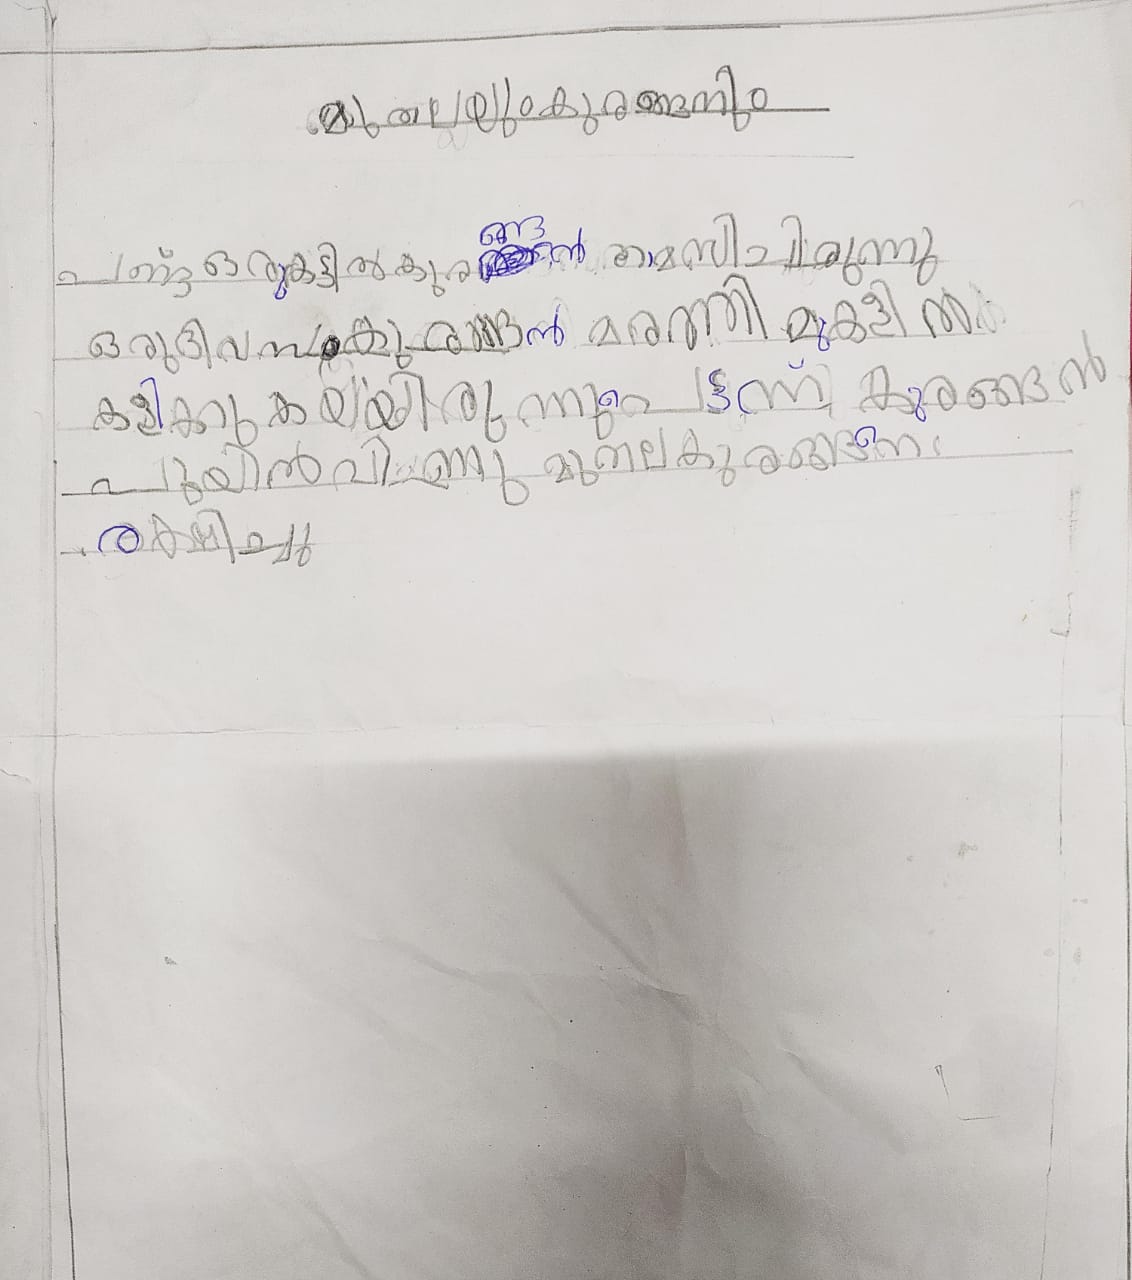 മുതലയും കുരങ്ങനും
പണ്ട് ഒരു കട്ടിൽ കുരങ്ങൻ താമസിചിരുന്നു
ഒരു ദിവസം കുരങ്ങൻ മരത്തി മുകളിൽ
കളിക്കുകയായിരുന്നു പെട്ടന്ന് കുരങ്ങൻ
പുഴയിൽ വിണു മുതല കുരങ്ങനെ
രക്ഷിച്ചു